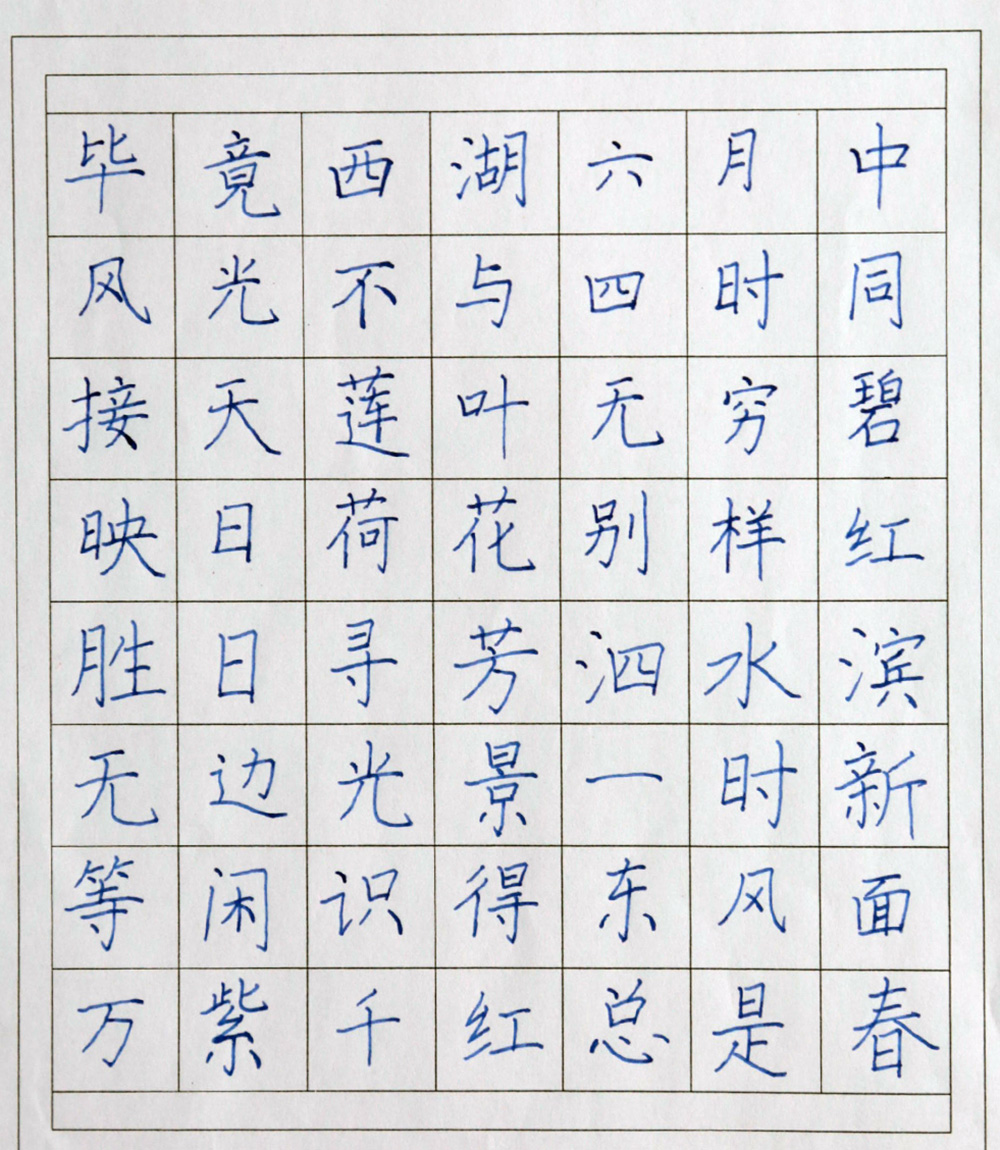 毕竟西湖六月中
风光不与四时同
接天莲叶无穷碧
映日荷花别样红
胜日寻芳泗水滨
无边光景一时新
等闲识得东风面
万紫千红总是春